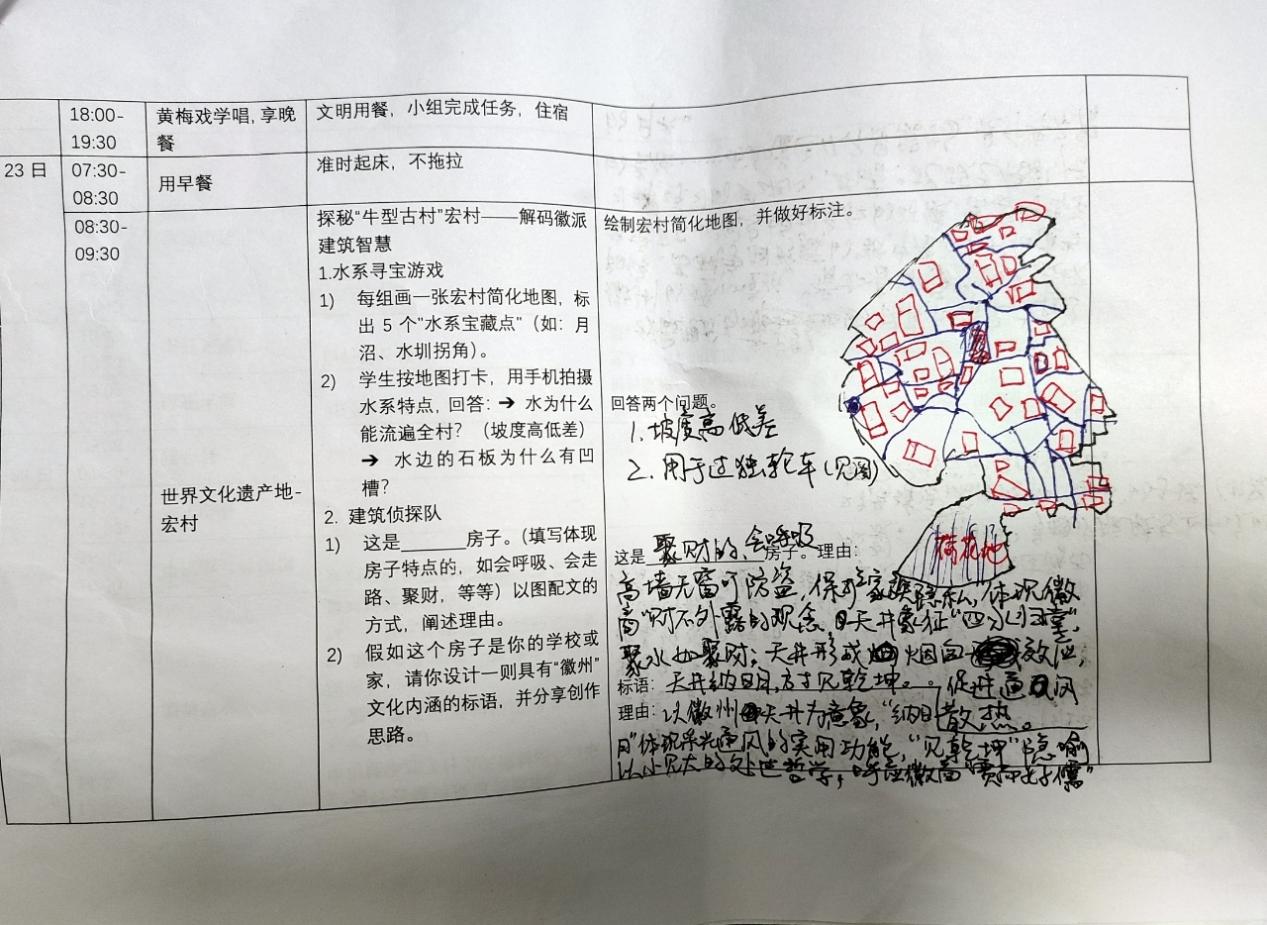 18:00-
19:30
黄梅戏学唱,享晚
餐
文明用餐，小组完成任务，住宿
23 日
07:30-
08:30
用早餐
准时起床，不拖拉
08:30-
09:30
世界文化遗产地-
宏村
探秘“牛型古村”宏村——解码徽派
建筑智慧
1.水系寻宝游戏
1) 每组画一张宏村简化地图，标
出 5 个"水系宝藏点"（如：月
沼、水圳拐角）。
2) 学生按地图打卡，用手机拍摄
水系特点，回答：➔ 水为什么
能流遍全村？（坡度高低差）
➔ 水边的石板为什么有凹
槽？
2. 建筑侦探队
1) 这是______房子。（填写体现
房子特点的，如会呼吸、会走
路、聚财，等等）以图配文的
方式，阐述理由。
2) 假如这个房子是你的学校或
家，请你设计一则具有“徽州”
文化内涵的标语，并分享创作
思路。
绘制宏村简化地图，并做好标注。
荷花池
回答两个问题。
1.坡度高低差
2.用于过独轮车(见图)
这是 聚财的,会呼吸 房子。理由：
高墙无窗可防盗,保护家族隐私,体现徽
商“财不外露的观念.天井象征“四水归堂”,
聚水如聚财;天井形成烟囱效应,
促进通风
散热。
标语：天井纳日月,方寸见乾坤。
理由：以徽州天井为意象,“纳日
月”体现采光通风的实用功能,“见乾坤”隐喻
以小见大的处世哲学,呼应徽商“贾而好儒”